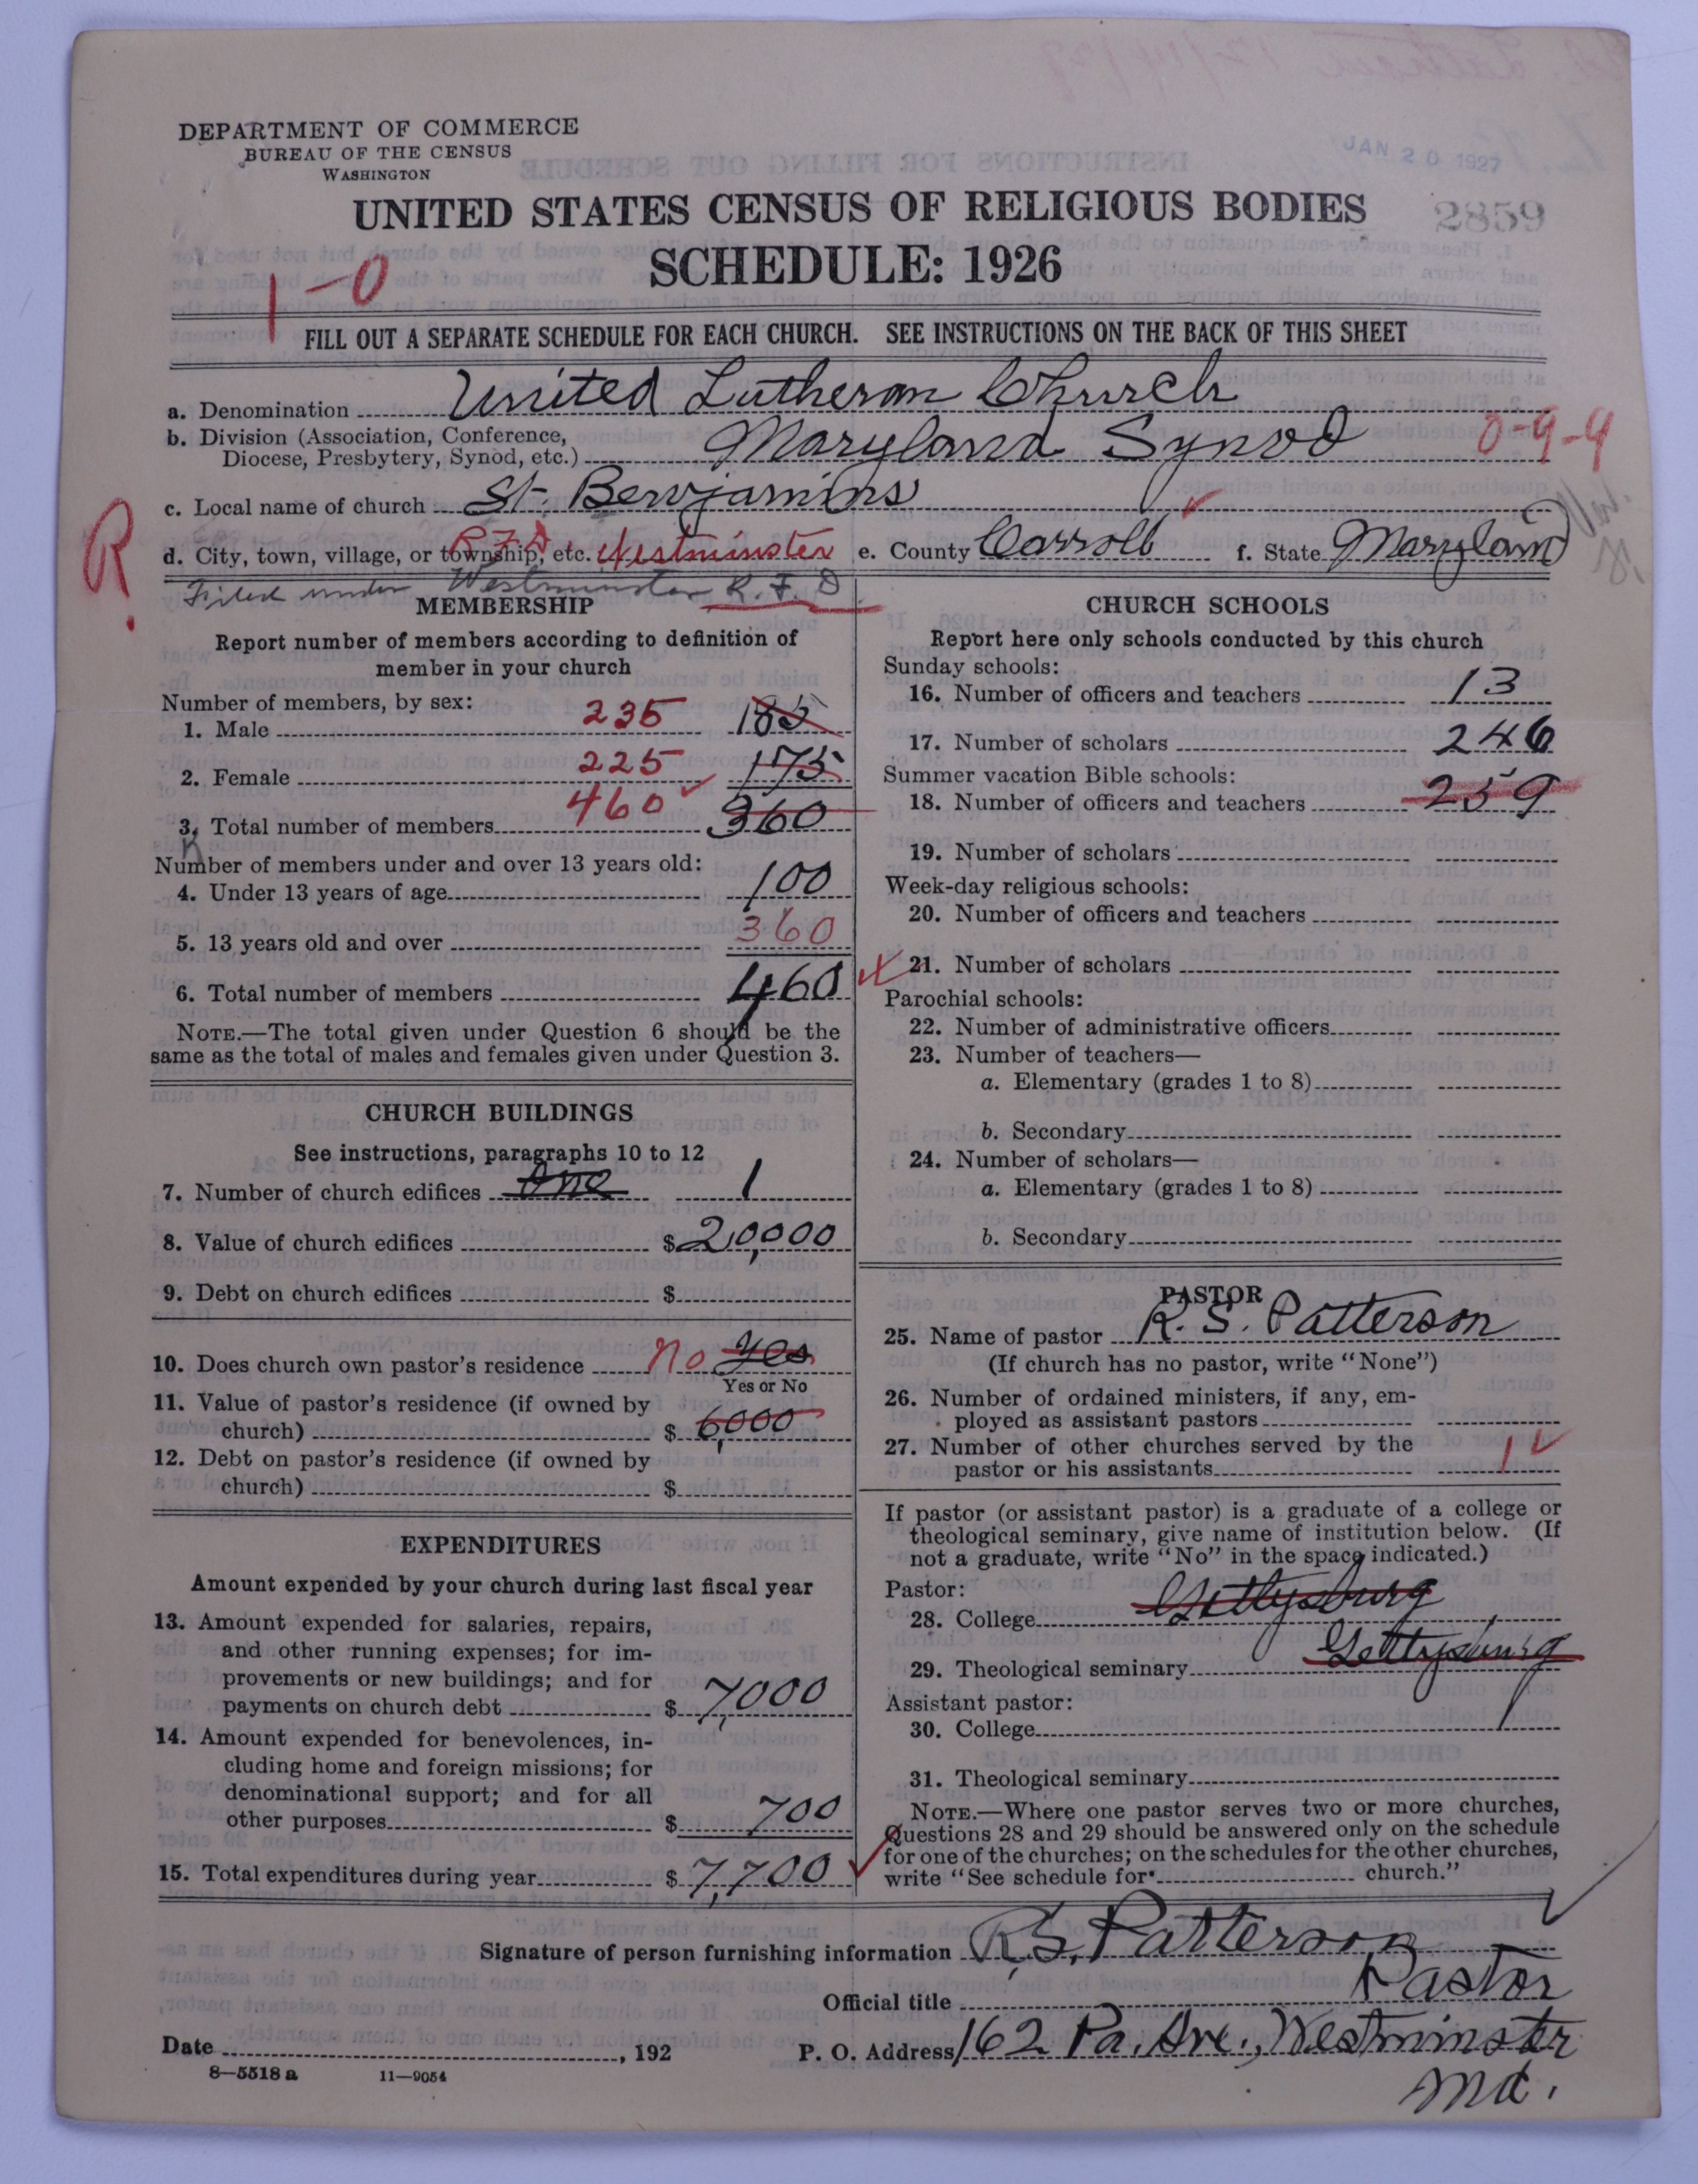 DEPARTMENT OF COMMERCE
BUREAU OF THE CENSUS
WASHINGTON
JAN 20 1927
UNITED STATES CENSUS OF RELIGIOUS BODIES
2859
SCHEDULE: 1926
1-0
FILL OUT A SEPARATE SCHEDULE FOR EACH CHURCH. SEE INSTRUCTIONS ON THE BACK OF THIS SHEET
a. Denomination United Lutheran Church
b. Division (Association, Conference,
Diocese, Presbytery, Synod, etc.) Maryland Synod 0-9-4
c. Local name of church St. Benjamins
R.
d. City, town, village, or township, etc. R F D Westminster e. County Carroll f. State Maryland
Filed under Westminster R.F.D
MEMBERSHIP
Report number of members according to definition of
member in your church
Number of members, by sex:
1. Male 235 185
2. Female 225 175
3. Total number of members 460 360
Number of members under and over 13 years old:
4. Under 13 years of age 100
5. 13 years old and over 360
6. Total number of members 460
NOTE.—The total given under Question 6 should be the
same as the total of males and females given under Question 3.
CHURCH BUILDINGS
See instructions, paragraphs 10 to 12
7. Number of church edifices One 1
8. Value of church edifices $ 20,000
9. Debt on church edifices $
10. Does church own pastor's residence no Yes
Yes or No
11. Value of pastor's residence (if owned by
church) $ 6,000
12. Debt on pastor's residence (if owned by
church) $
EXPENDITURES
Amount expended by your church during last fiscal year
13. Amount expended for salaries, repairs,
and other running expenses; for im-
provements or new buildings; and for
payments on church debt $ 7,000
14. Amount expended for benevolences, in-
cluding home and foreign missions; for
denominational support; and for all
other purposes $ 700
15. Total expenditures during year $ 7,700
CHURCH SCHOOLS
Report here only schools conducted by this church
Sunday schools:
16. Number of officers and teachers 13
17. Number of scholars 246
Summer vacation Bible schools:
18. Number of officers and teachers 259
19. Number of scholars
Week-day religious schools:
20. Number of officers and teachers
21. Number of scholars
Parochial schools:
22. Number of administrative officers
23. Number of teachers—
a. Elementary (grades 1 to 8)
b. Secondary
24. Number of scholars—
a. Elementary (grades 1 to 8)
b. Secondary
PASTOR
25. Name of pastor R. S. Patterson
(If church has no pastor, write "None")
26. Number of ordained ministers, if any, em-
ployed as assistant pastors
27. Number of other churches served by the
pastor or his assistants 1
If pastor (or assistant pastor) is a graduate of a college or
theological seminary, give name of institution below. (If
not a graduate, write "No" in the space indicated.)
Pastor:
28. College Gettysburg
29. Theological seminary Gettysburg
Assistant pastor:
30. College
31. Theological seminary
NOTE.—Where one pastor serves two or more churches,
Questions 28 and 29 should be answered only on the schedule
for one of the churches; on the schedules for the other churches,
write "See schedule for church."
Signature of person furnishing information R. S. Patterson
Official title Pastor
Date , 192
P. O. Address 162 Pa. Ave., Westminster
Md.
8—5518 a 11—9054